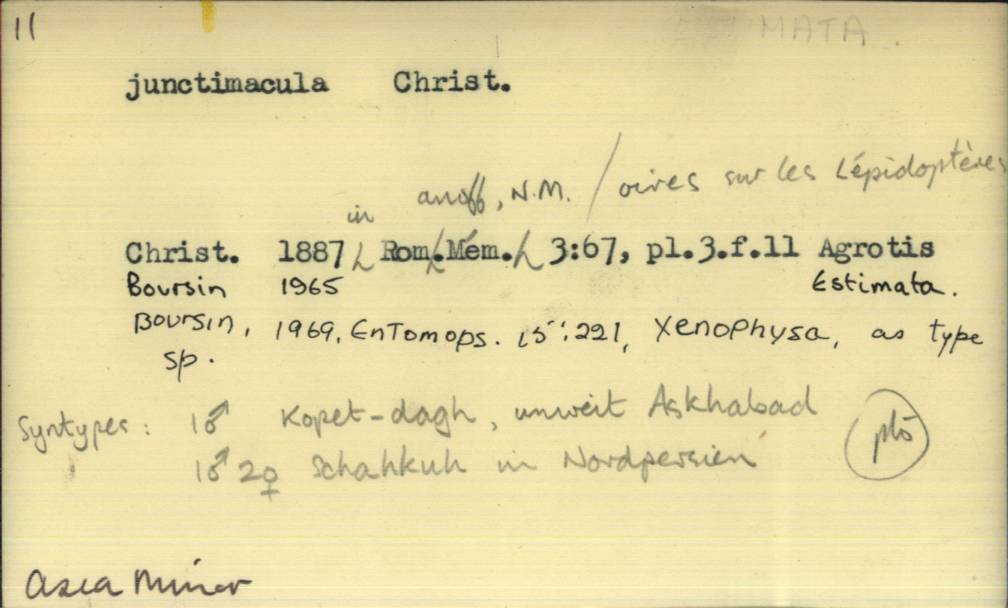 11
MATA
junctimacula Christ.
in anoff, N.M. / oires sur les Lépidoptères
Christ. 1887 Rom. Mém. 3:67, pl.3.f.11 Agrotis
Boursin 1965 Estimata.
Boursin, 1969. Entomops. 15:221, Xenophysa, as type
sp.
Syntypes: 1♂ Kopet-dagh, unweit Askhabad
1♂ 2♀ Schahkuh in Nordpersien
pto
Asia Minor